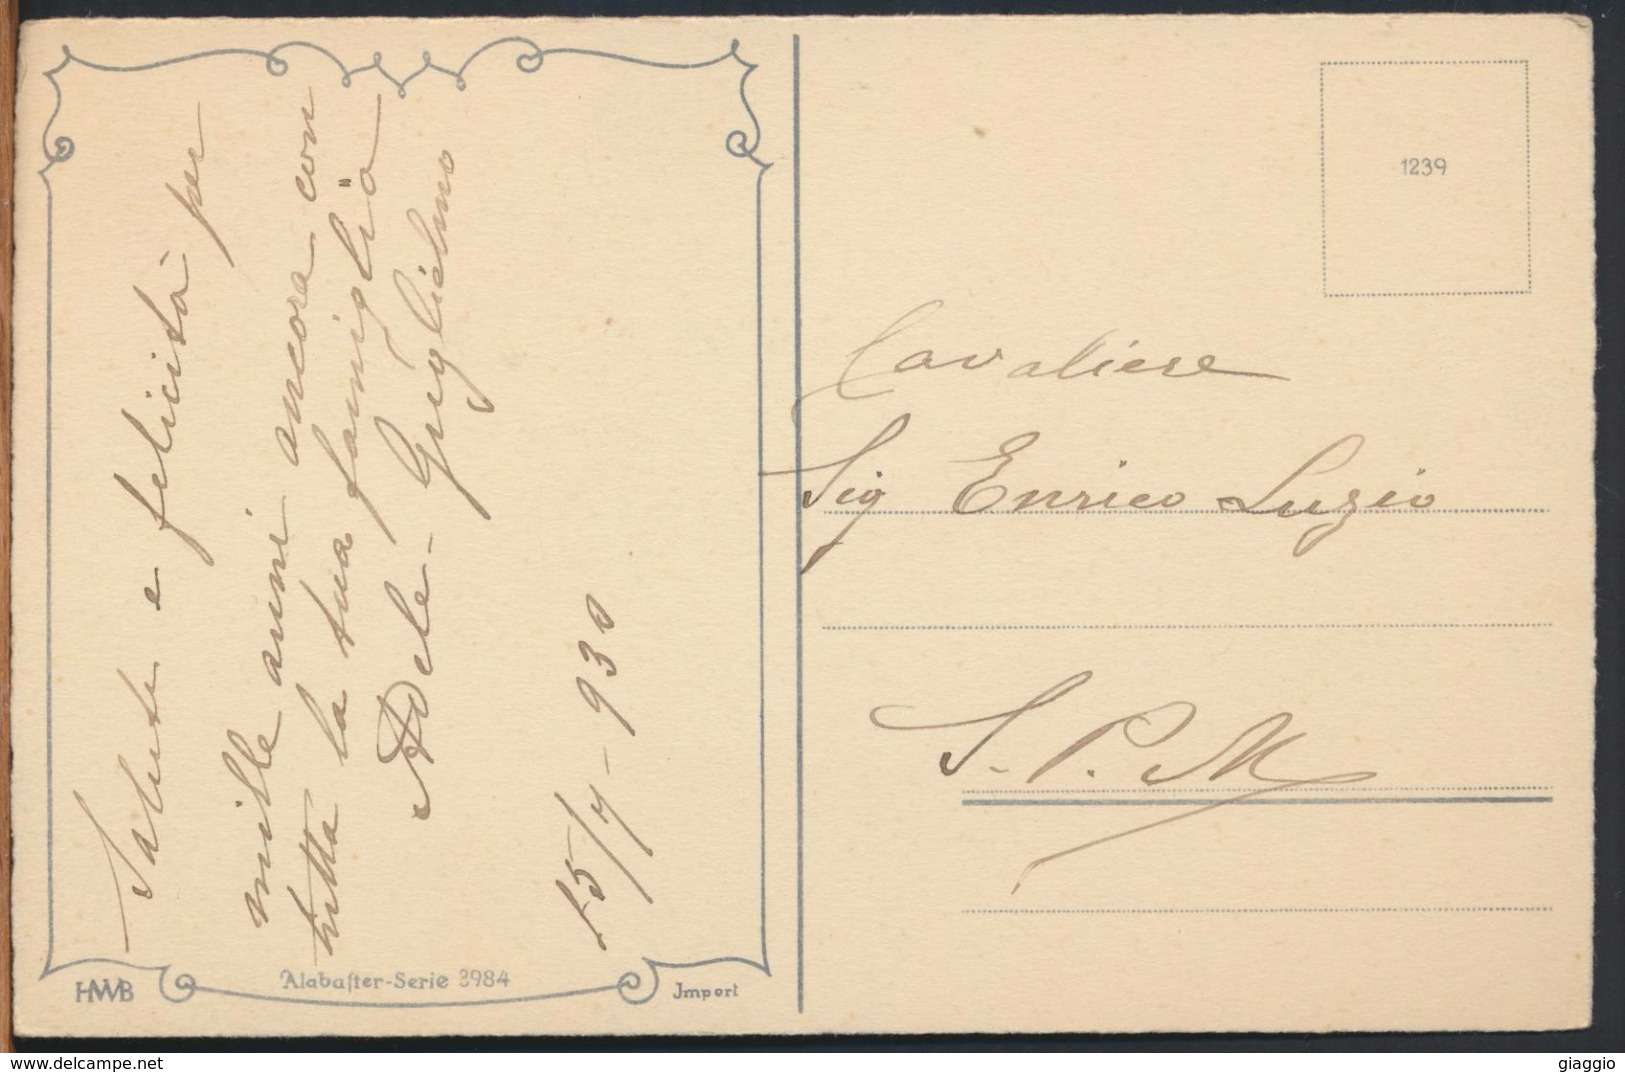 Salute e felicità per
mille anni ancora con
tutta la tua famiglia
Adele - Guglielmo
15/7-930
HWB
Alabaſter-Serie 3984
Import
1239
Cavaliere
Sig Enrico Luzio
S. P. M
www.delcampe.net
giaggio